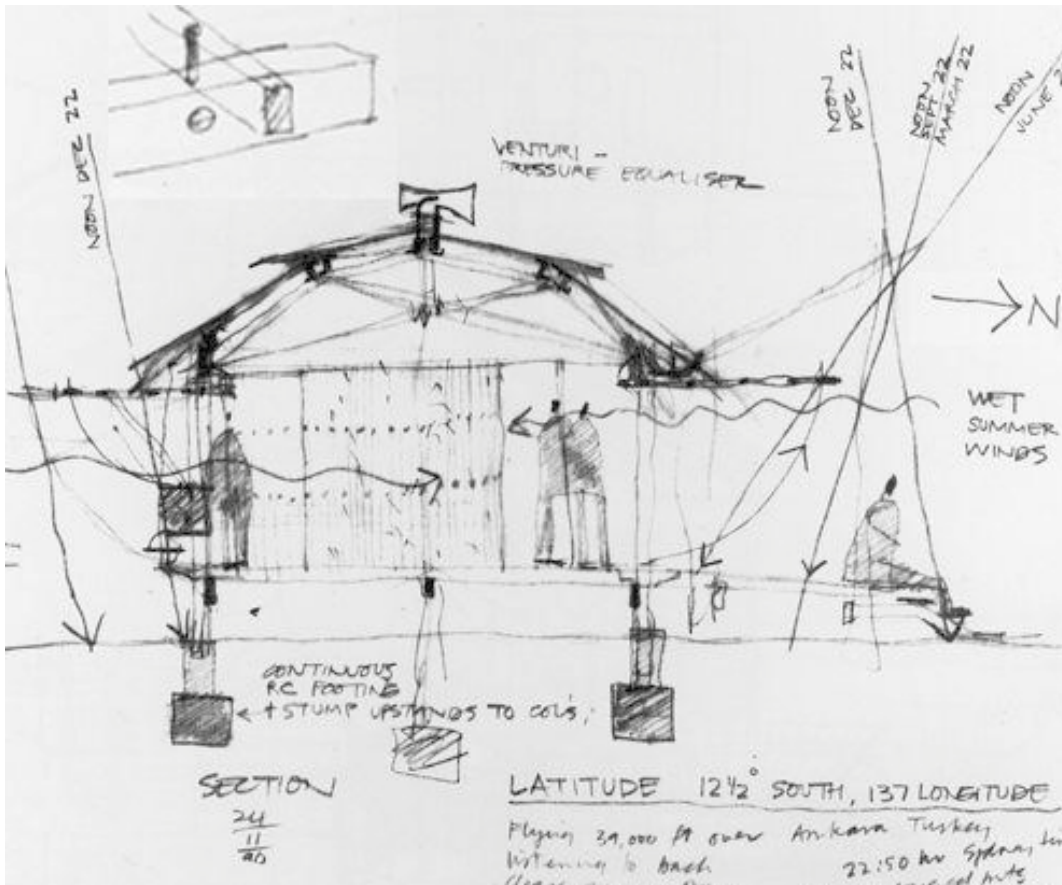 NOON DEC 22
VENTURI -
PRESSURE EQUALISER
NOON
DEC 22
NOON
SEPT 22
MARCH 22
NOON
JUNE
N
WET
SUMMER
WINDS
CONTINUOUS
RC FOOTING
+ STUMP UPSTANDS TO COLS,
SECTION
24
11
90
LATITUDE 12½° SOUTH, 137 LONGITUDE
Flying 39,000 ft over Ankara Turkey
listening to bach 22:50 hr